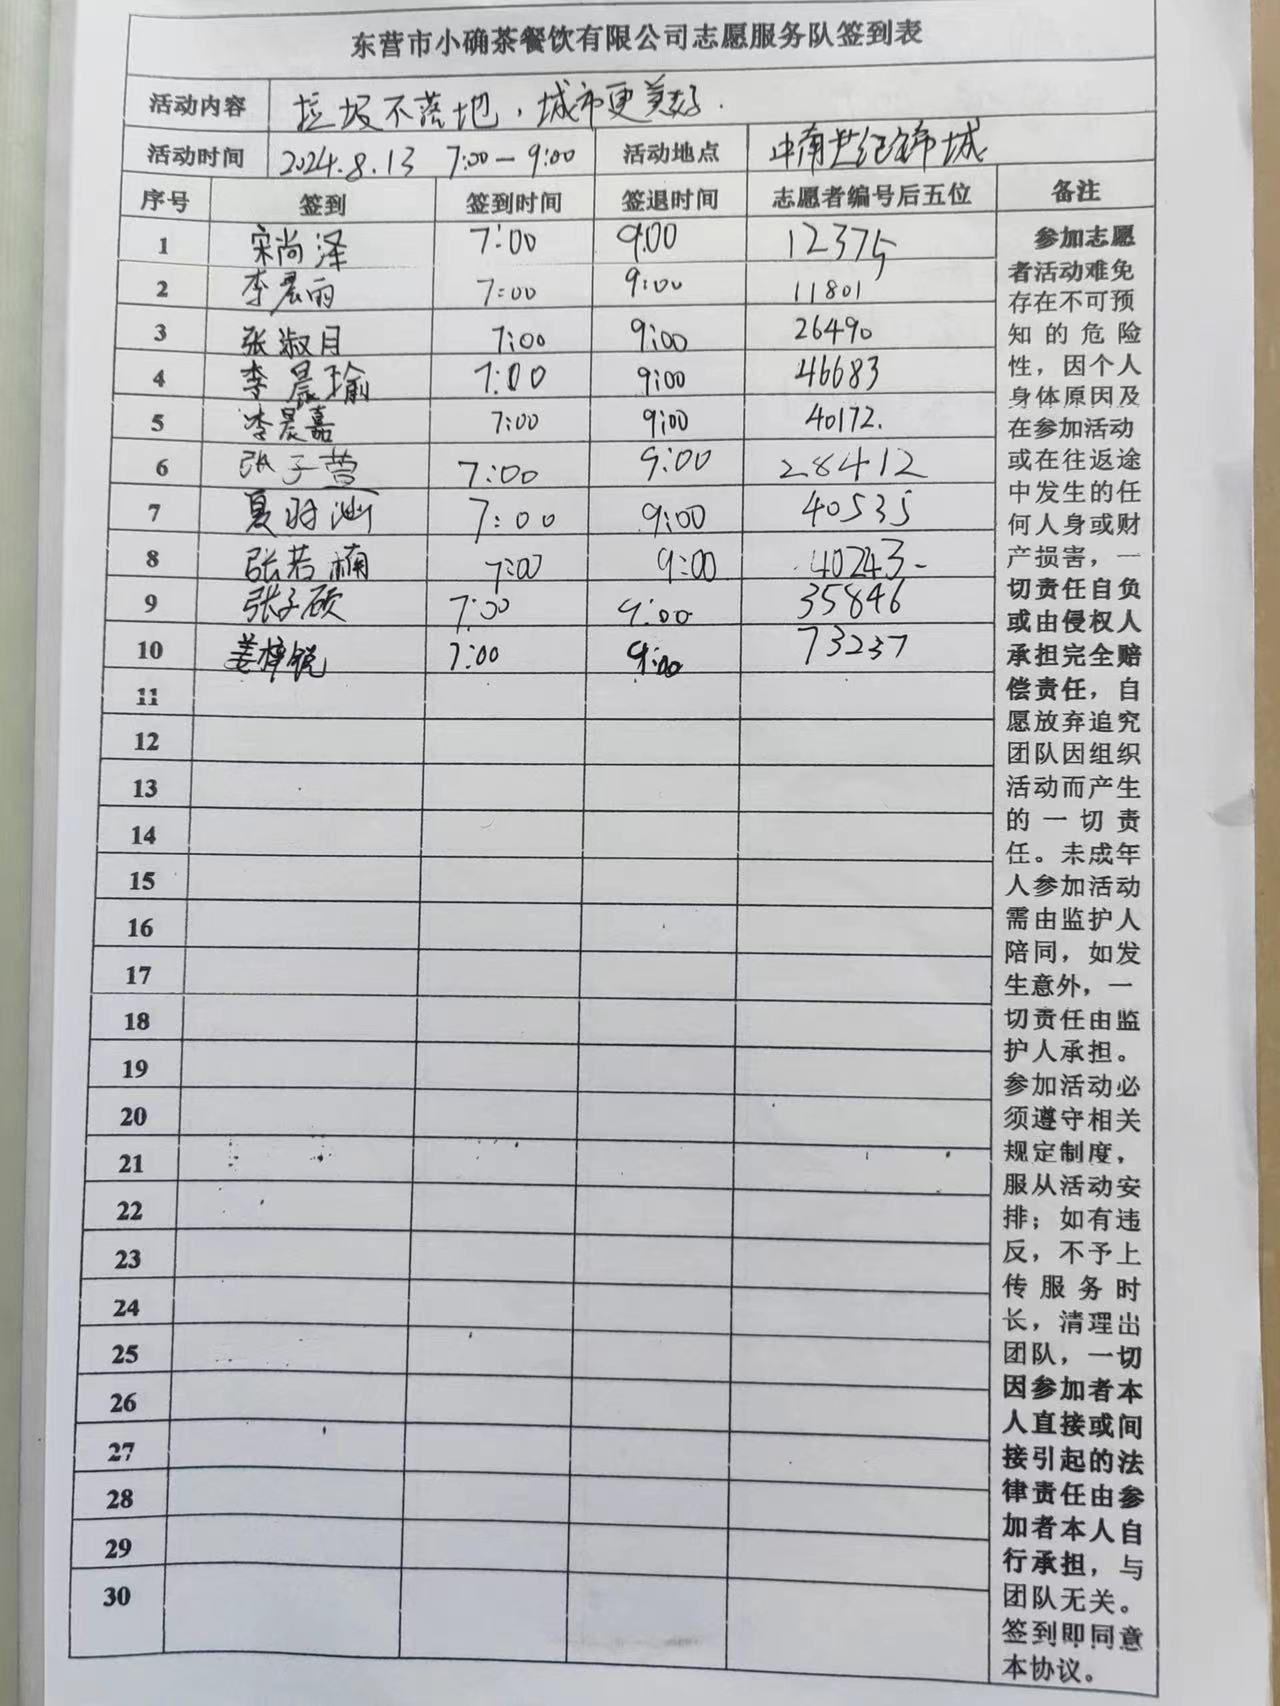 东营市小确茶餐饮有限公司志愿服务队签到表
活动内容 垃圾不落地，城市更美好.
活动时间 2024.8.13 7:00-9:00 活动地点 中南世纪锦城
序号 签到 签到时间 签退时间 志愿者编号后五位 备注
1 宋尚泽 7:00 9:00 12375
2 李晨雨 7:00 9:00 11801
3 张淑月 7:00 9:00 26490
4 李晨瑜 7:00 9:00 46683
5 李晨嘉 7:00 9:00 40172.
6 张子萱 7:00 9:00 28412
7 夏 7:00 9:00 40535
8 张若楠 7:00 9:00 40243
9 张子硕 7:00 9:00 35846
10 姜梓锐 7:00 9:00 73237
11
12
13
14
15
16
17
18
19
20
21
22
23
24
25
26
27
28
29
30
参加志愿
者活动难免
存在不可预
知的危险
性，因个人
身体原因及
在参加活动
或在往返途
中发生的任
何人身或财
产损害，一
切责任自负
或由侵权人
承担完全赔
偿责任，自
愿放弃追究
团队因组织
活动而产生
的一切责
任。未成年
人参加活动
需由监护人
陪同，如发
生意外，一
切责任由监
护人承担。
参加活动必
须遵守相关
规定制度，
服从活动安
排；如有违
反，不予上
传服务时
长，清理出
团队，一切
因参加者本
人直接或间
接引起的法
律责任由参
加者本人自
行承担，与
团队无关。
签到即同意
本协议。